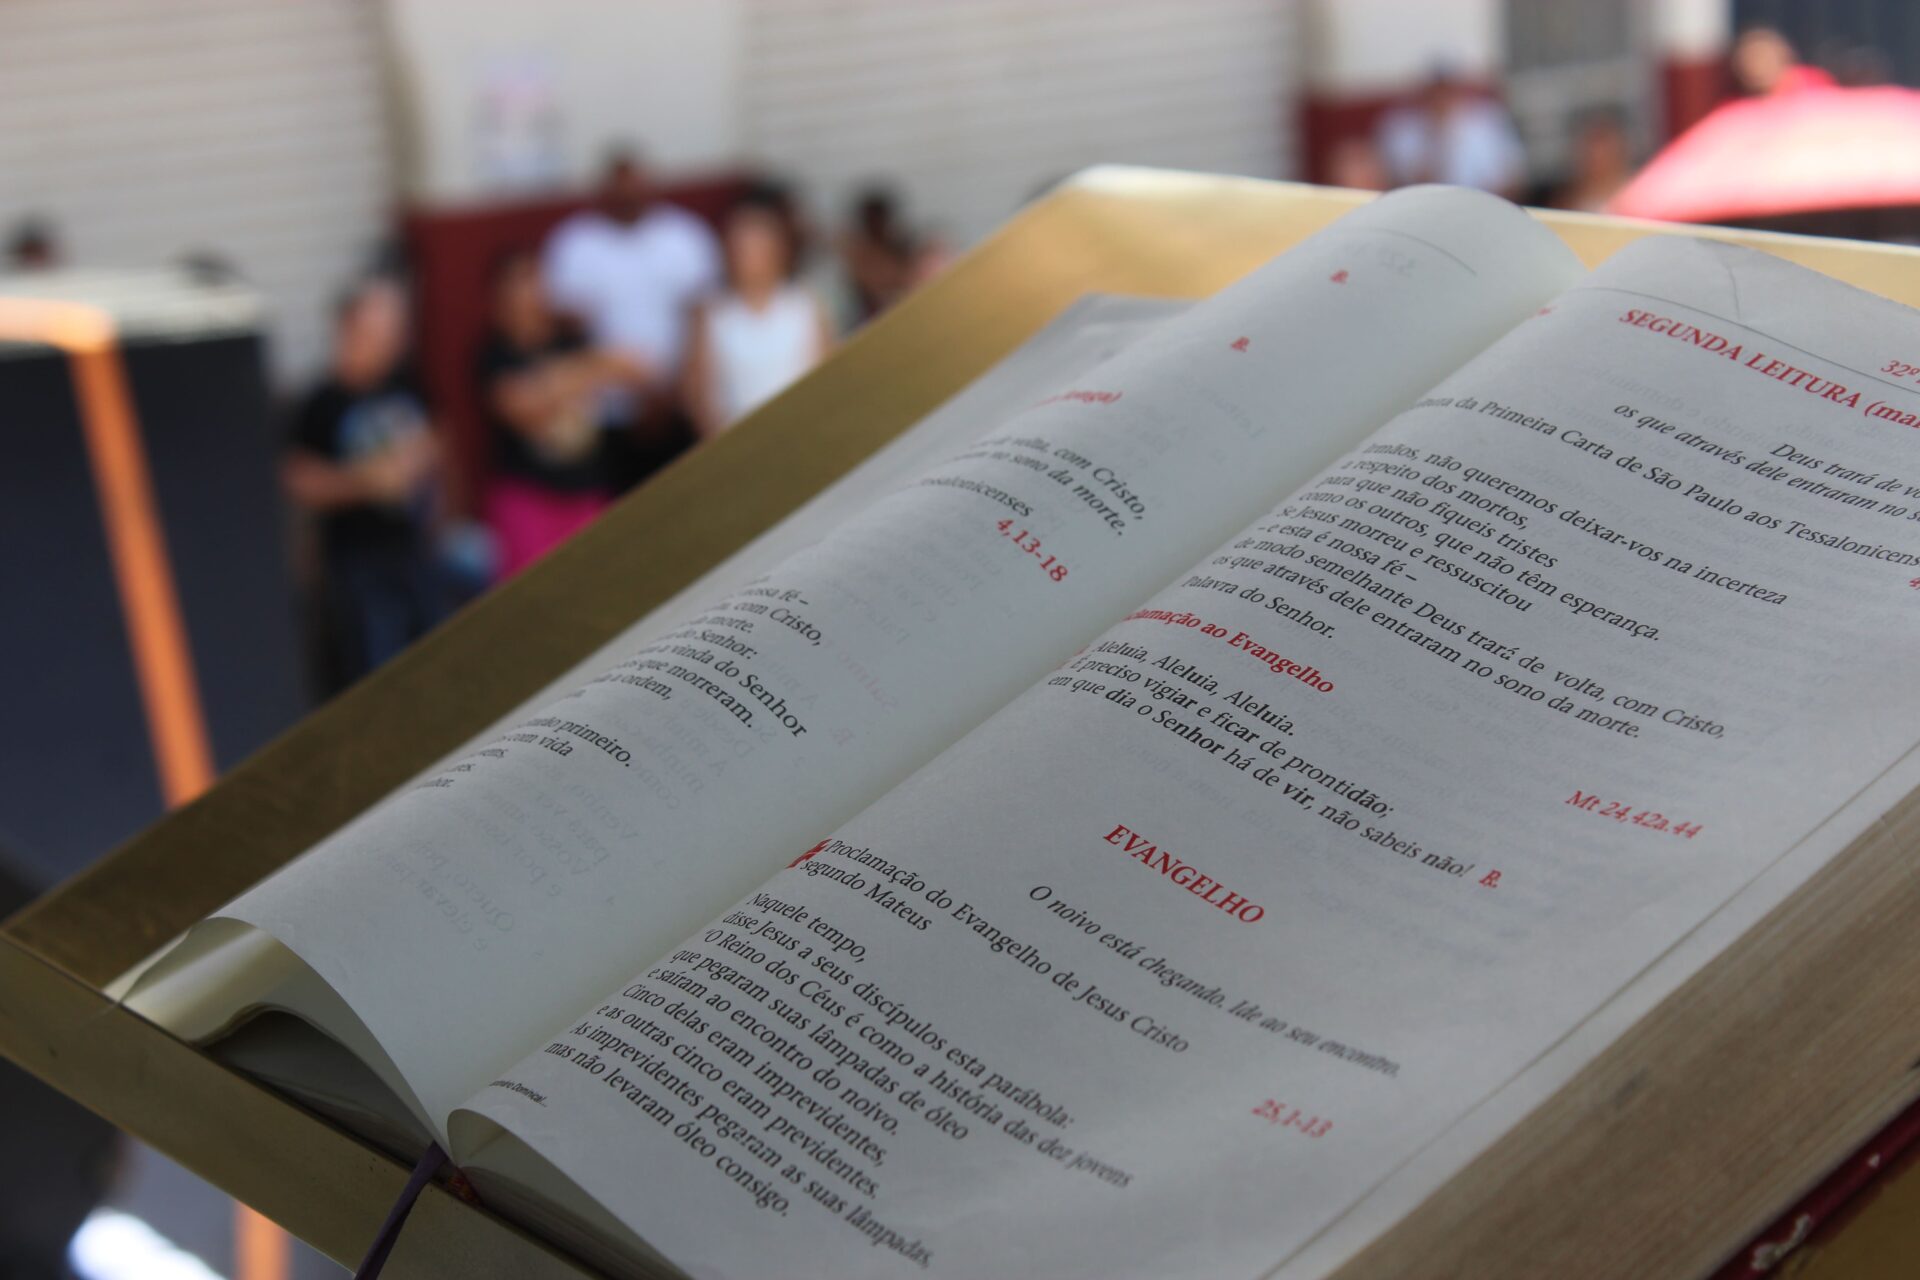 R.
R.
longa)
de volta, com Cristo,
no sono da morte.
Tessalonicenses
4,13-18
nossa fé –
com Cristo,
da morte.
do Senhor:
a vinda do Senhor
que morreram.
a ordem,
primeiro.
com vida
32º
SEGUNDA LEITURA
Deus trará de
os que através dele entraram no
da Primeira Carta de São Paulo aos
Irmãos, não queremos deixar-vos na incerteza
a respeito dos mortos,
para que não fiqueis tristes
como os outros, que não têm esperança.
Se Jesus morreu e ressuscitou
– e esta é nossa fé –
de modo semelhante Deus trará de volta, com Cristo,
os que através dele entraram no sono da morte.
Palavra do Senhor.
ao Evangelho
Aleluia, Aleluia, Aleluia.
É preciso vigiar e ficar de prontidão;
em que dia o Senhor há de vir, não sabeis não! R.
Mt 24,42a.44
EVANGELHO
O noivo está chegando. Ide ao seu encontro.
Proclamação do Evangelho de Jesus Cristo
segundo Mateus
25,1-13
Naquele tempo,
disse Jesus a seus discípulos esta parábola:
“O Reino dos Céus é como a história das dez jovens
que pegaram suas lâmpadas de óleo
e saíram ao encontro do noivo.
Cinco delas eram imprevidentes,
e as outras cinco eram previdentes.
As imprevidentes pegaram as suas lâmpadas,
mas não levaram óleo consigo.